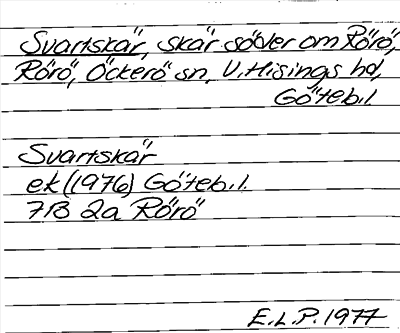 Svartskär, skär söder om Rörö,
Rörö, Öckerö sn, V. Hisings hd,
Göteb.l
Svartskär
ek (1976) Göteb.l.
7B 2a Rörö
E.L.P. 1977